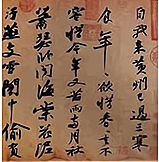 自我來黃州已過三寒
食年〻欲惜春〻去不
容惜今年又苦雨兩月秋
蕭瑟卧聞海棠花泥
汙燕支雪闇中偷負